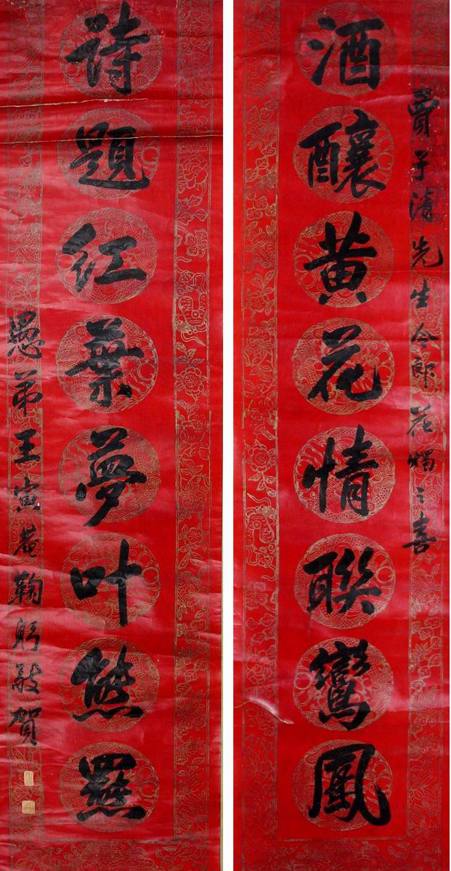 賈子先生令郎花燭之喜
酒釀黄花情聯鸞鳳
詩題紅葉夢叶熊羆
愚弟王寅菴鞠躬敬賀